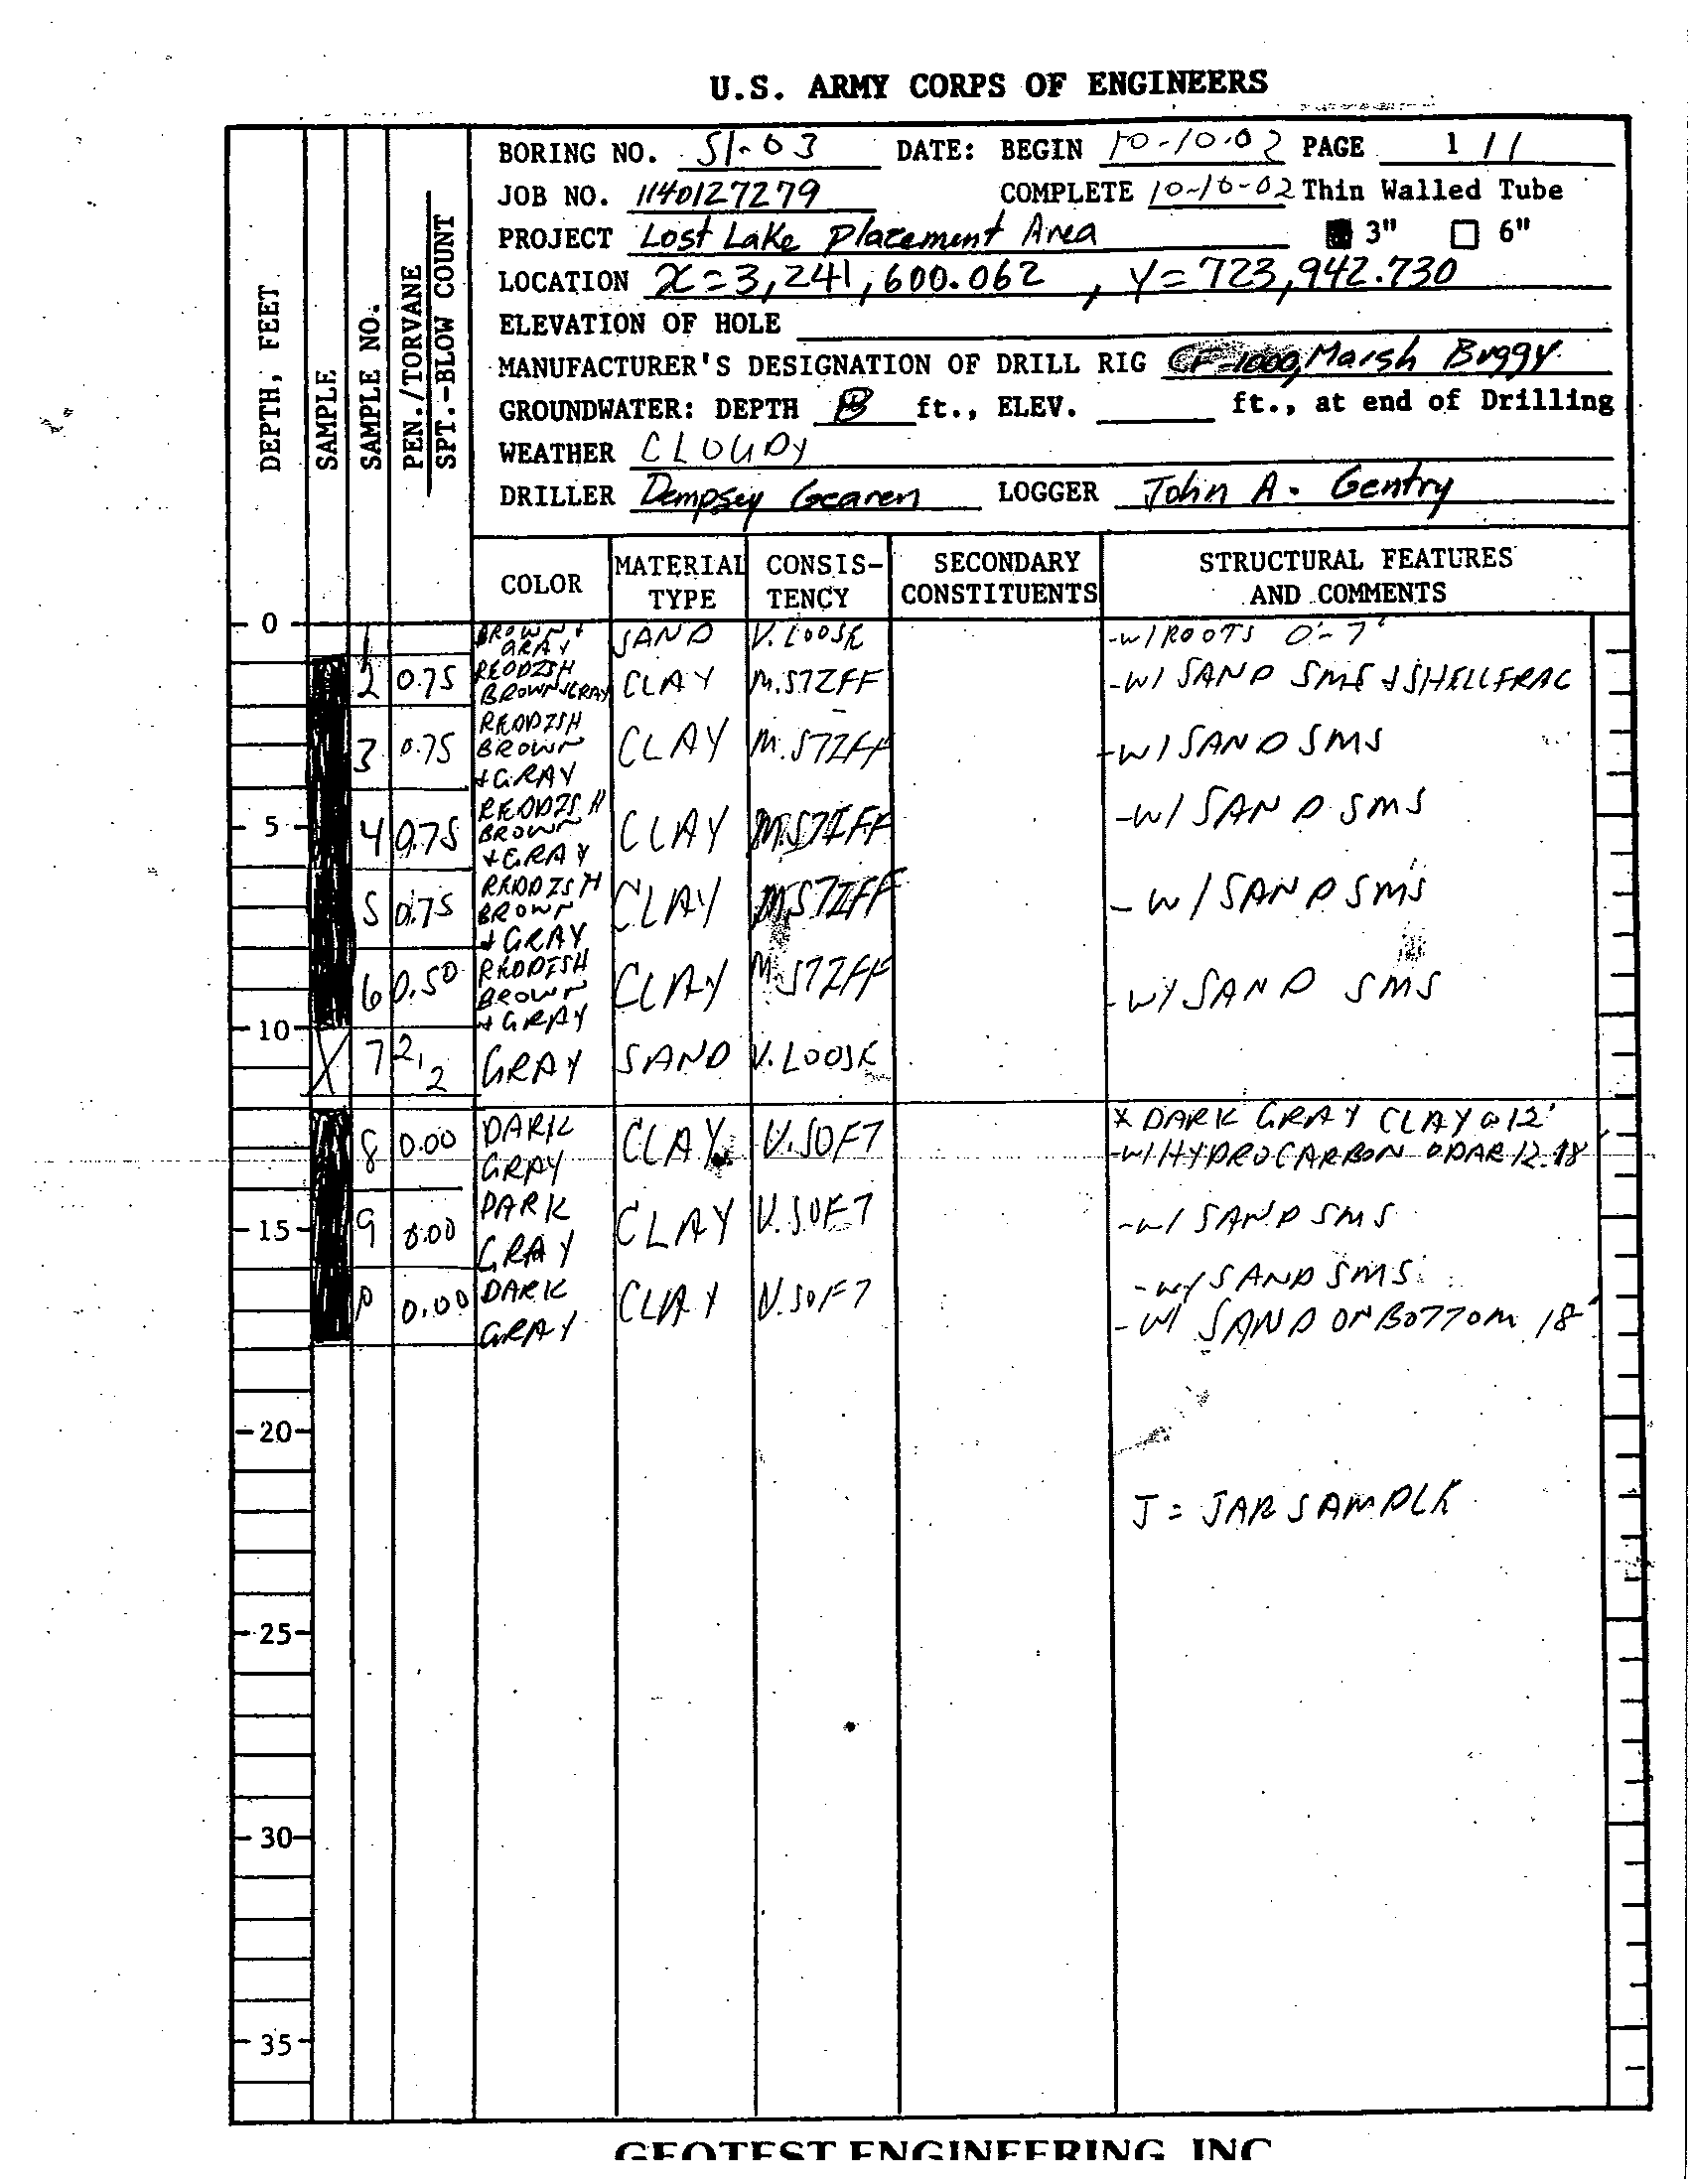 U.S. ARMY CORPS OF ENGINEERS
BORING NO. 51-03 DATE: BEGIN 10-10-02 PAGE 1 / 1
JOB NO. 1140127279 COMPLETE 10-10-02 Thin Walled Tube
PROJECT Lost Lake Placement Area 3" 6"
LOCATION X=3,241,600.062 , Y=723,942.730
ELEVATION OF HOLE
MANUFACTURER'S DESIGNATION OF DRILL RIG CF-1000, Marsh Buggy
GROUNDWATER: DEPTH ft., ELEV. ft., at end of Drilling
WEATHER CLOUDY
DRILLER Dempsey Gearen LOGGER John A. Gentry
DEPTH, FEET
SAMPLE
SAMPLE NO.
PEN./TORVANE
SPT.-BLOW COUNT
COLOR MATERIAL TYPE CONSIS-TENCY SECONDARY CONSTITUENTS STRUCTURAL FEATURES AND COMMENTS
0 1 BROWN + GRAY SAND V. LOOSE -W/ROOTS 0'-7'
2 0.75 REDDISH BROWN+GRAY CLAY M.STIFF -W/ SAND SMS + SHELLFRAC
3 0.75 REDDISH BROWN +GRAY CLAY M.STIFF -W/SAND SMS
5 4 0.75 REDDISH BROWN +GRAY CLAY M.STIFF -W/ SAND SMS
5 0.75 REDDISH BROWN + GRAY CLAY M.STIFF -W/SAND SMS
6 0.50 REDDISH BROWN + GRAY CLAY M.STIFF -W/SAND SMS
10 7 2,2 GRAY SAND V. LOOSE
8 0.00 DARK GRAY CLAY V.SOFT X DARK GRAY CLAY @ 12'
-W/HYDROCARBON ODAR 12-18'
15 9 0.00 DARK GRAY CLAY V.SOFT -W/ SAND SMS
10 0.00 DARK GRAY CLAY V.SOFT -W/SAND SMS
-W/ SAND ON BOTTOM 18'
20
J = JAR SAMPLE
25
30
35
GEOTEST ENGINEERING, INC